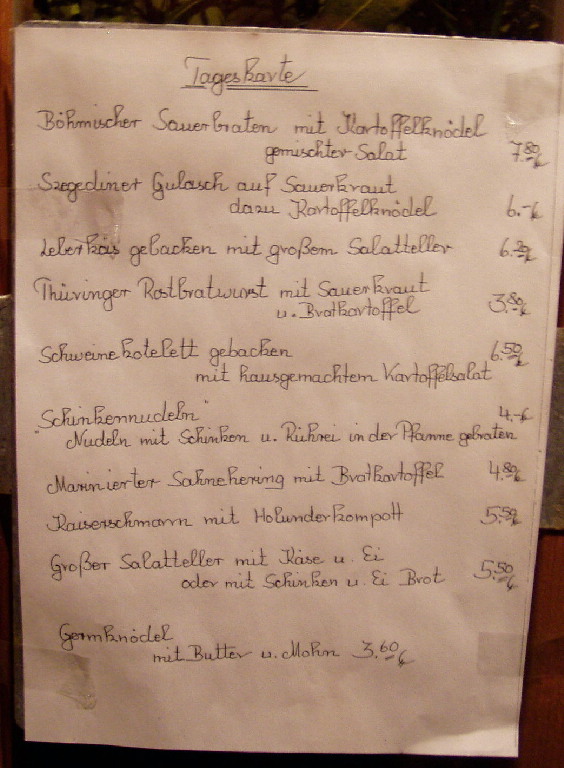 Tageskarte
Böhmischer Sauerbraten mit Kartoffelknödel
gemischter Salat 7.80 €
Szegediner Gulasch auf Sauerkraut
dazu Kartoffelknödel 6.- €
Leberkäs gebacken mit großem Salatteller 6.20 €
Thüringer Rostbratwurst mit Sauerkraut
u. Bratkartoffel 3.80 €
Schweinekotelett gebacken 6.50 €
mit hausgemachtem Kartoffelsalat
"Schinkennudeln" 4.- €
Nudeln mit Schinken u. Rührei in der Pfanne gebraten
Marinierter Sahnehering mit Bratkartoffel 4.80 €
Kaiserschmarrn mit Holunderkompott 5.50 €
Großer Salatteller mit Käse u. Ei
oder mit Schinken u. Ei Brot 5.50 €
Germknödel
mit Butter u. Mohn 3.60 €